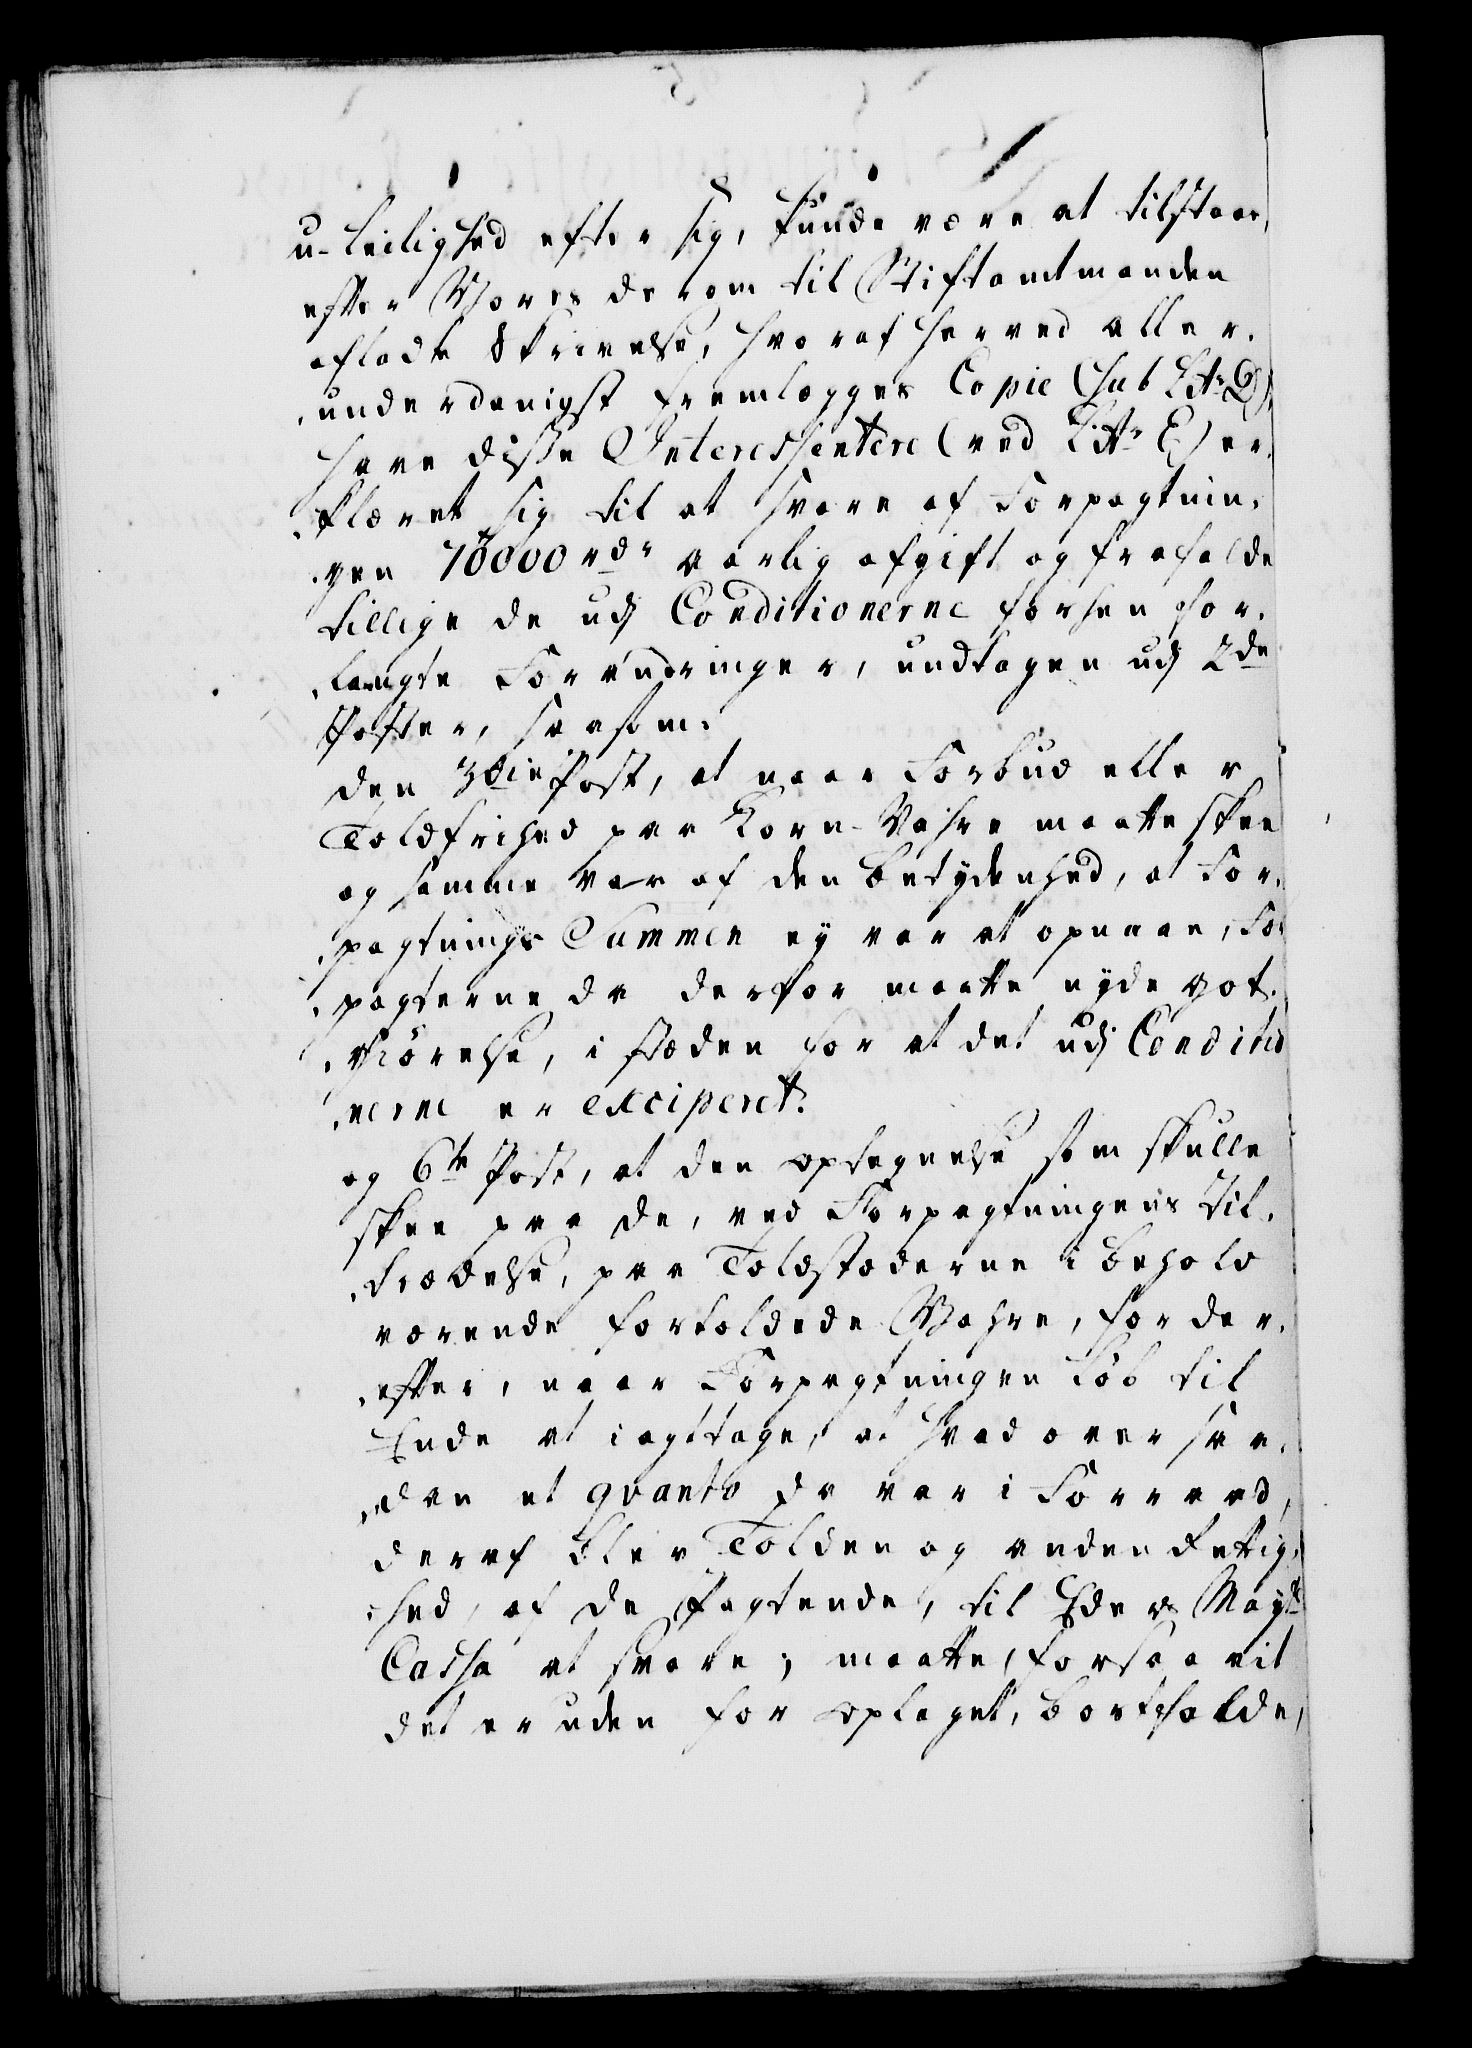 u-leilighed efter sig, kunde være at tilstaae,
efter Vores derom til Stiftamtmanden
afladte Skrivelse, hvoraf herved aller,
,underdanigst fremlægges Copie (sub Litr: D),
have disse Interessentere (ved Litr: E) er,
,klæret sig til at svare af Forpagtnin,
,gen 70000 rdr aarlig afgift og frafalde
tillige de udj Conditionerne forhen for,
,langte Forandringer, undtagen udj 2de
Poster, saasom:
den 3die Post, at naar Forbud eller
Toldfrihed paa Korn-Vahre maatte skee
og samme var af den betydenhed, at For,
,pagtnings Summen ey var at opnaae, For
,pagterne da derfor maatte nyde got,
,giörelse, i stæden for at det udj Conditio
,nerne er exciperet.
og 6te Post, at den optegnelse som skulle
skee paa de, ved Forpagtningens Til,
,trædelse, paa Toldstæderne i behold
værende fortoldede Wahre, for der,
,efter, naar Forpagtningen Löb til
Ende at iagttage, at hvad over saa,
,dan et qvanto da var i Forraad,
deraf blev Tolden og anden Rettig,
,hed, af de Pagtende, til Eders Mayts
Cassa at svare; maatte, forsaavit
det er uden for oplaget, bortfalde,